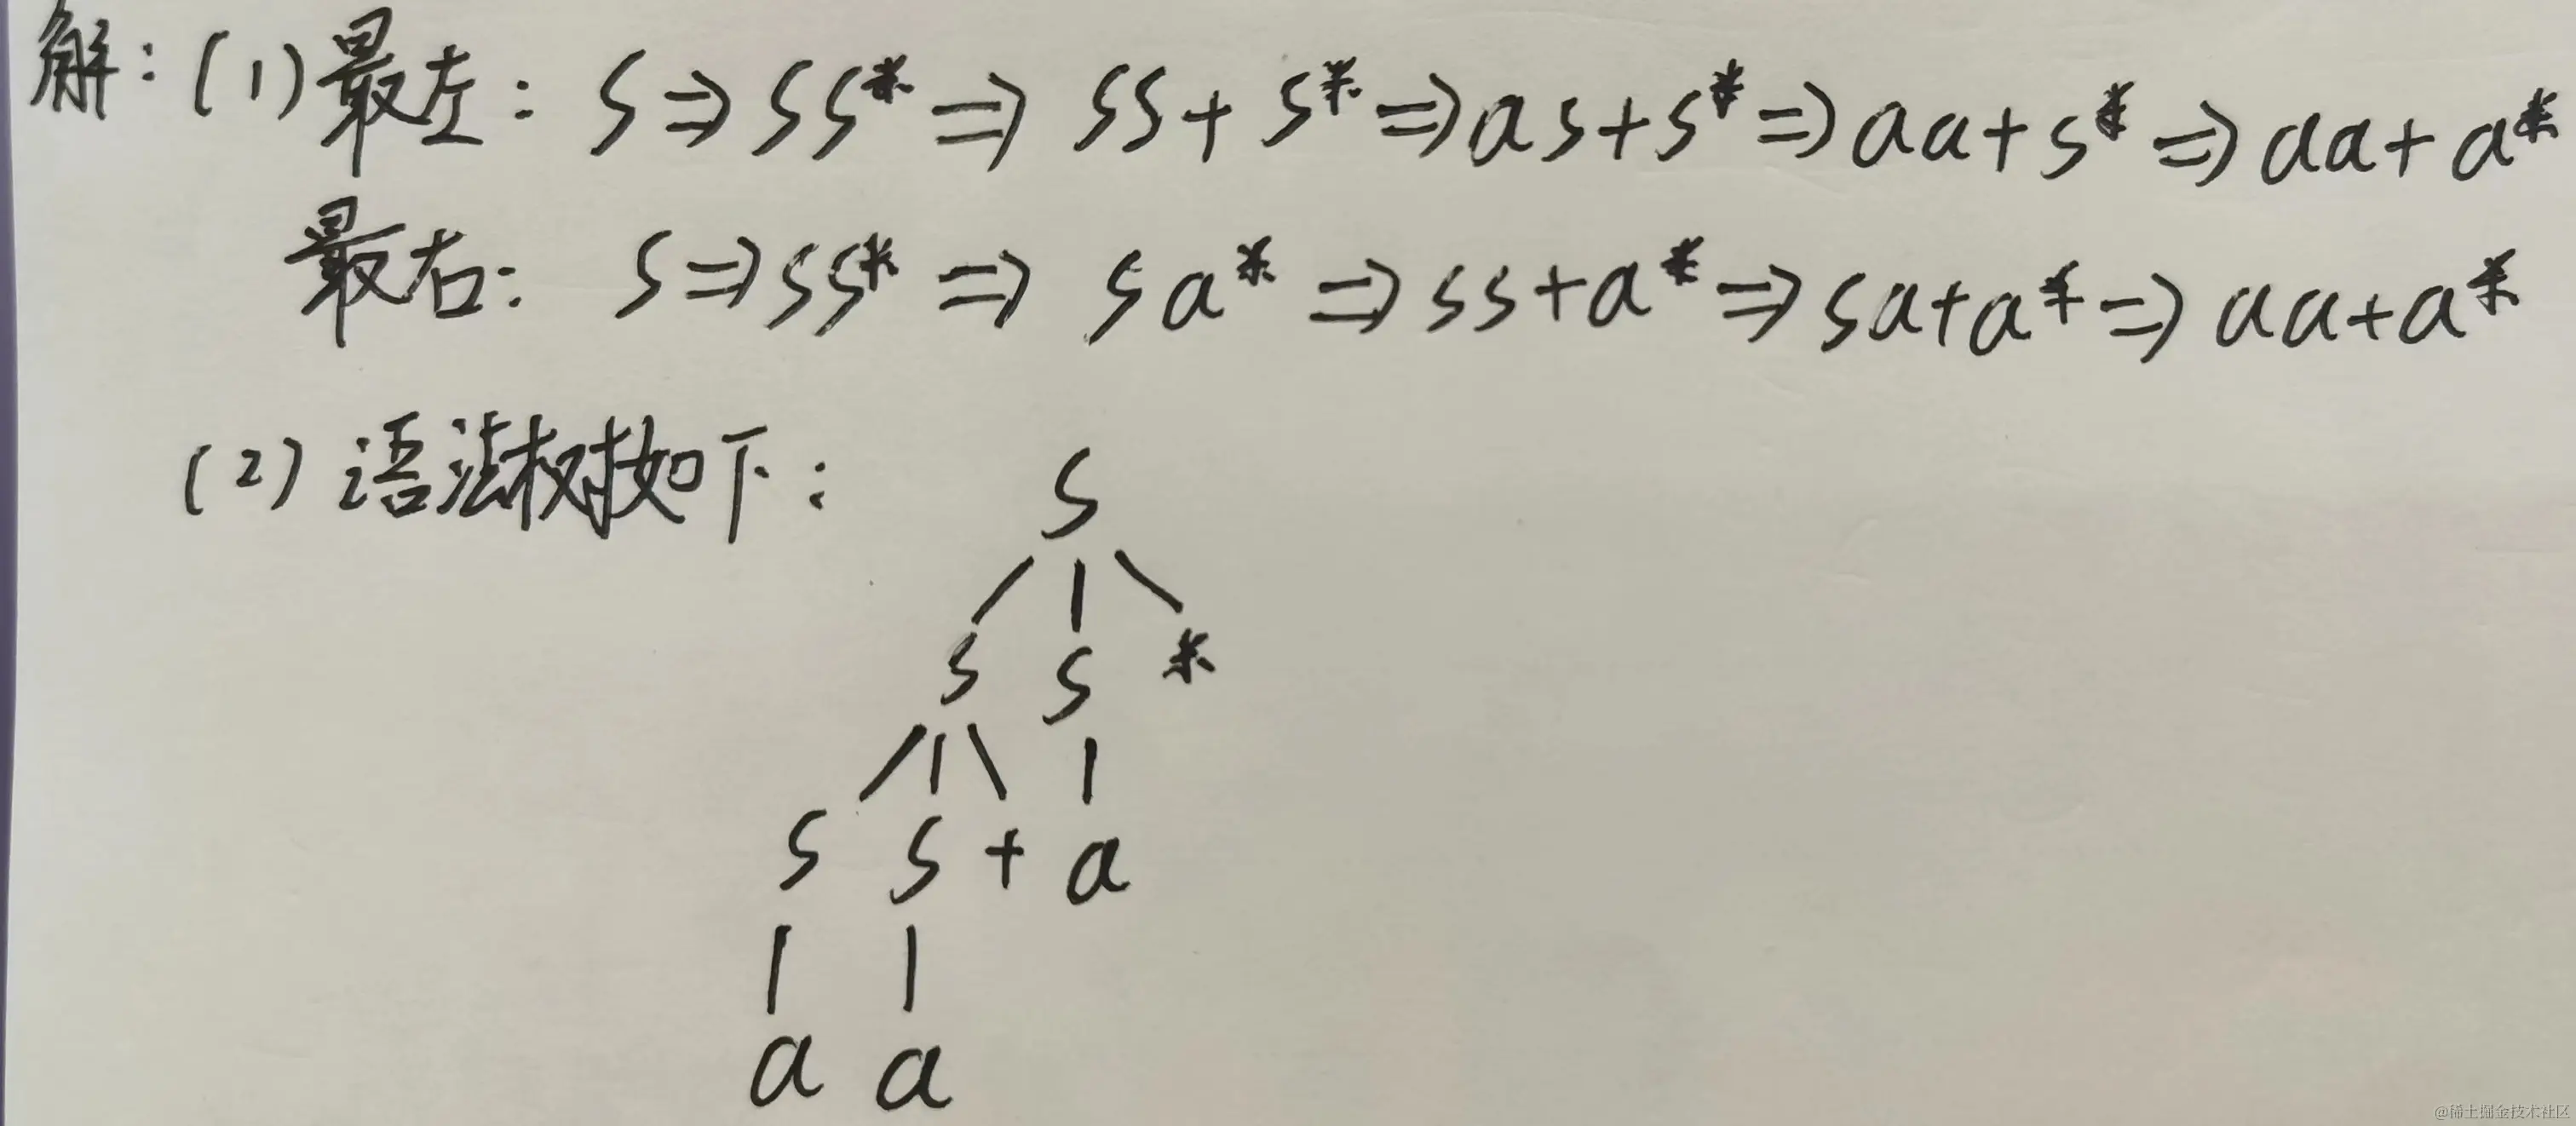 解：(1)最左： S⇒SS*⇒SS+S*⇒aS+S*⇒aa+S*⇒aa+a*
最右： S⇒SS*⇒Sa*⇒SS+a*⇒Sa+a*⇒aa+a*
(2)语法树如下：
S
S S *
S S + a
a a
@稀土掘金技术社区